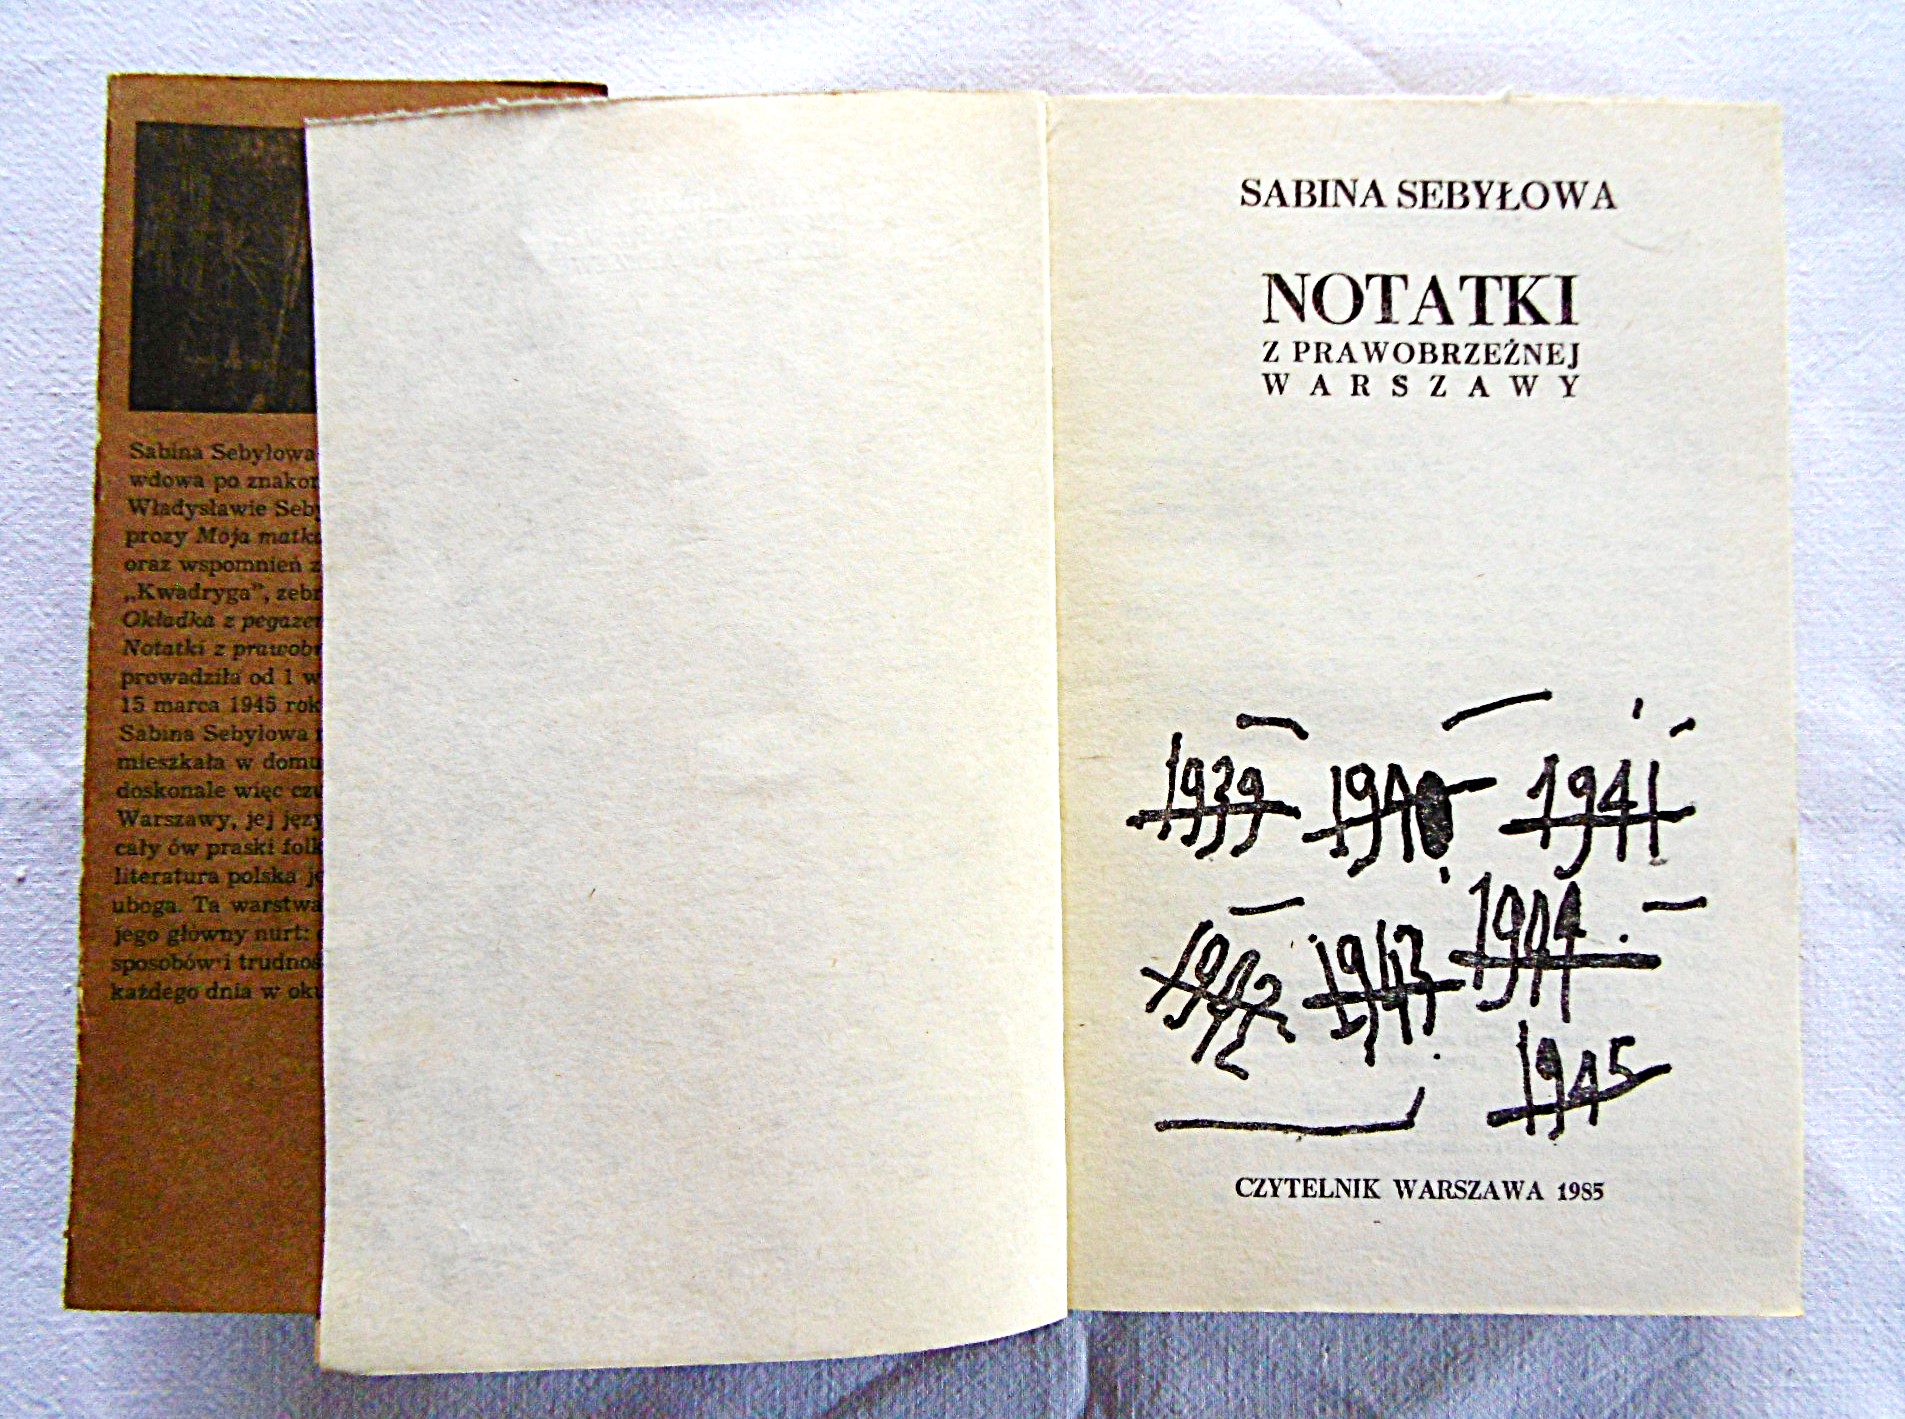 Sabina Sebyłowa
wdowa po
Władysławie
prozy Moja
oraz wspomnień
„Kwadryga”,
Okładka z
Notatki z
prowadziła od 1
15 marca 1945
Sabina Sebyłowa
mieszkała w
doskonale więc
Warszawy, jej
cały ów praski
literatura polska
uboga. Ta warstwa
jego główny nurt:
sposobów i
każdego dnia w
SABINA SEBYŁOWA
NOTATKI
Z PRAWOBRZEŻNEJ
WARSZAWY
1939 1940 1941
1942 1943 1944
1945
CZYTELNIK WARSZAWA 1985